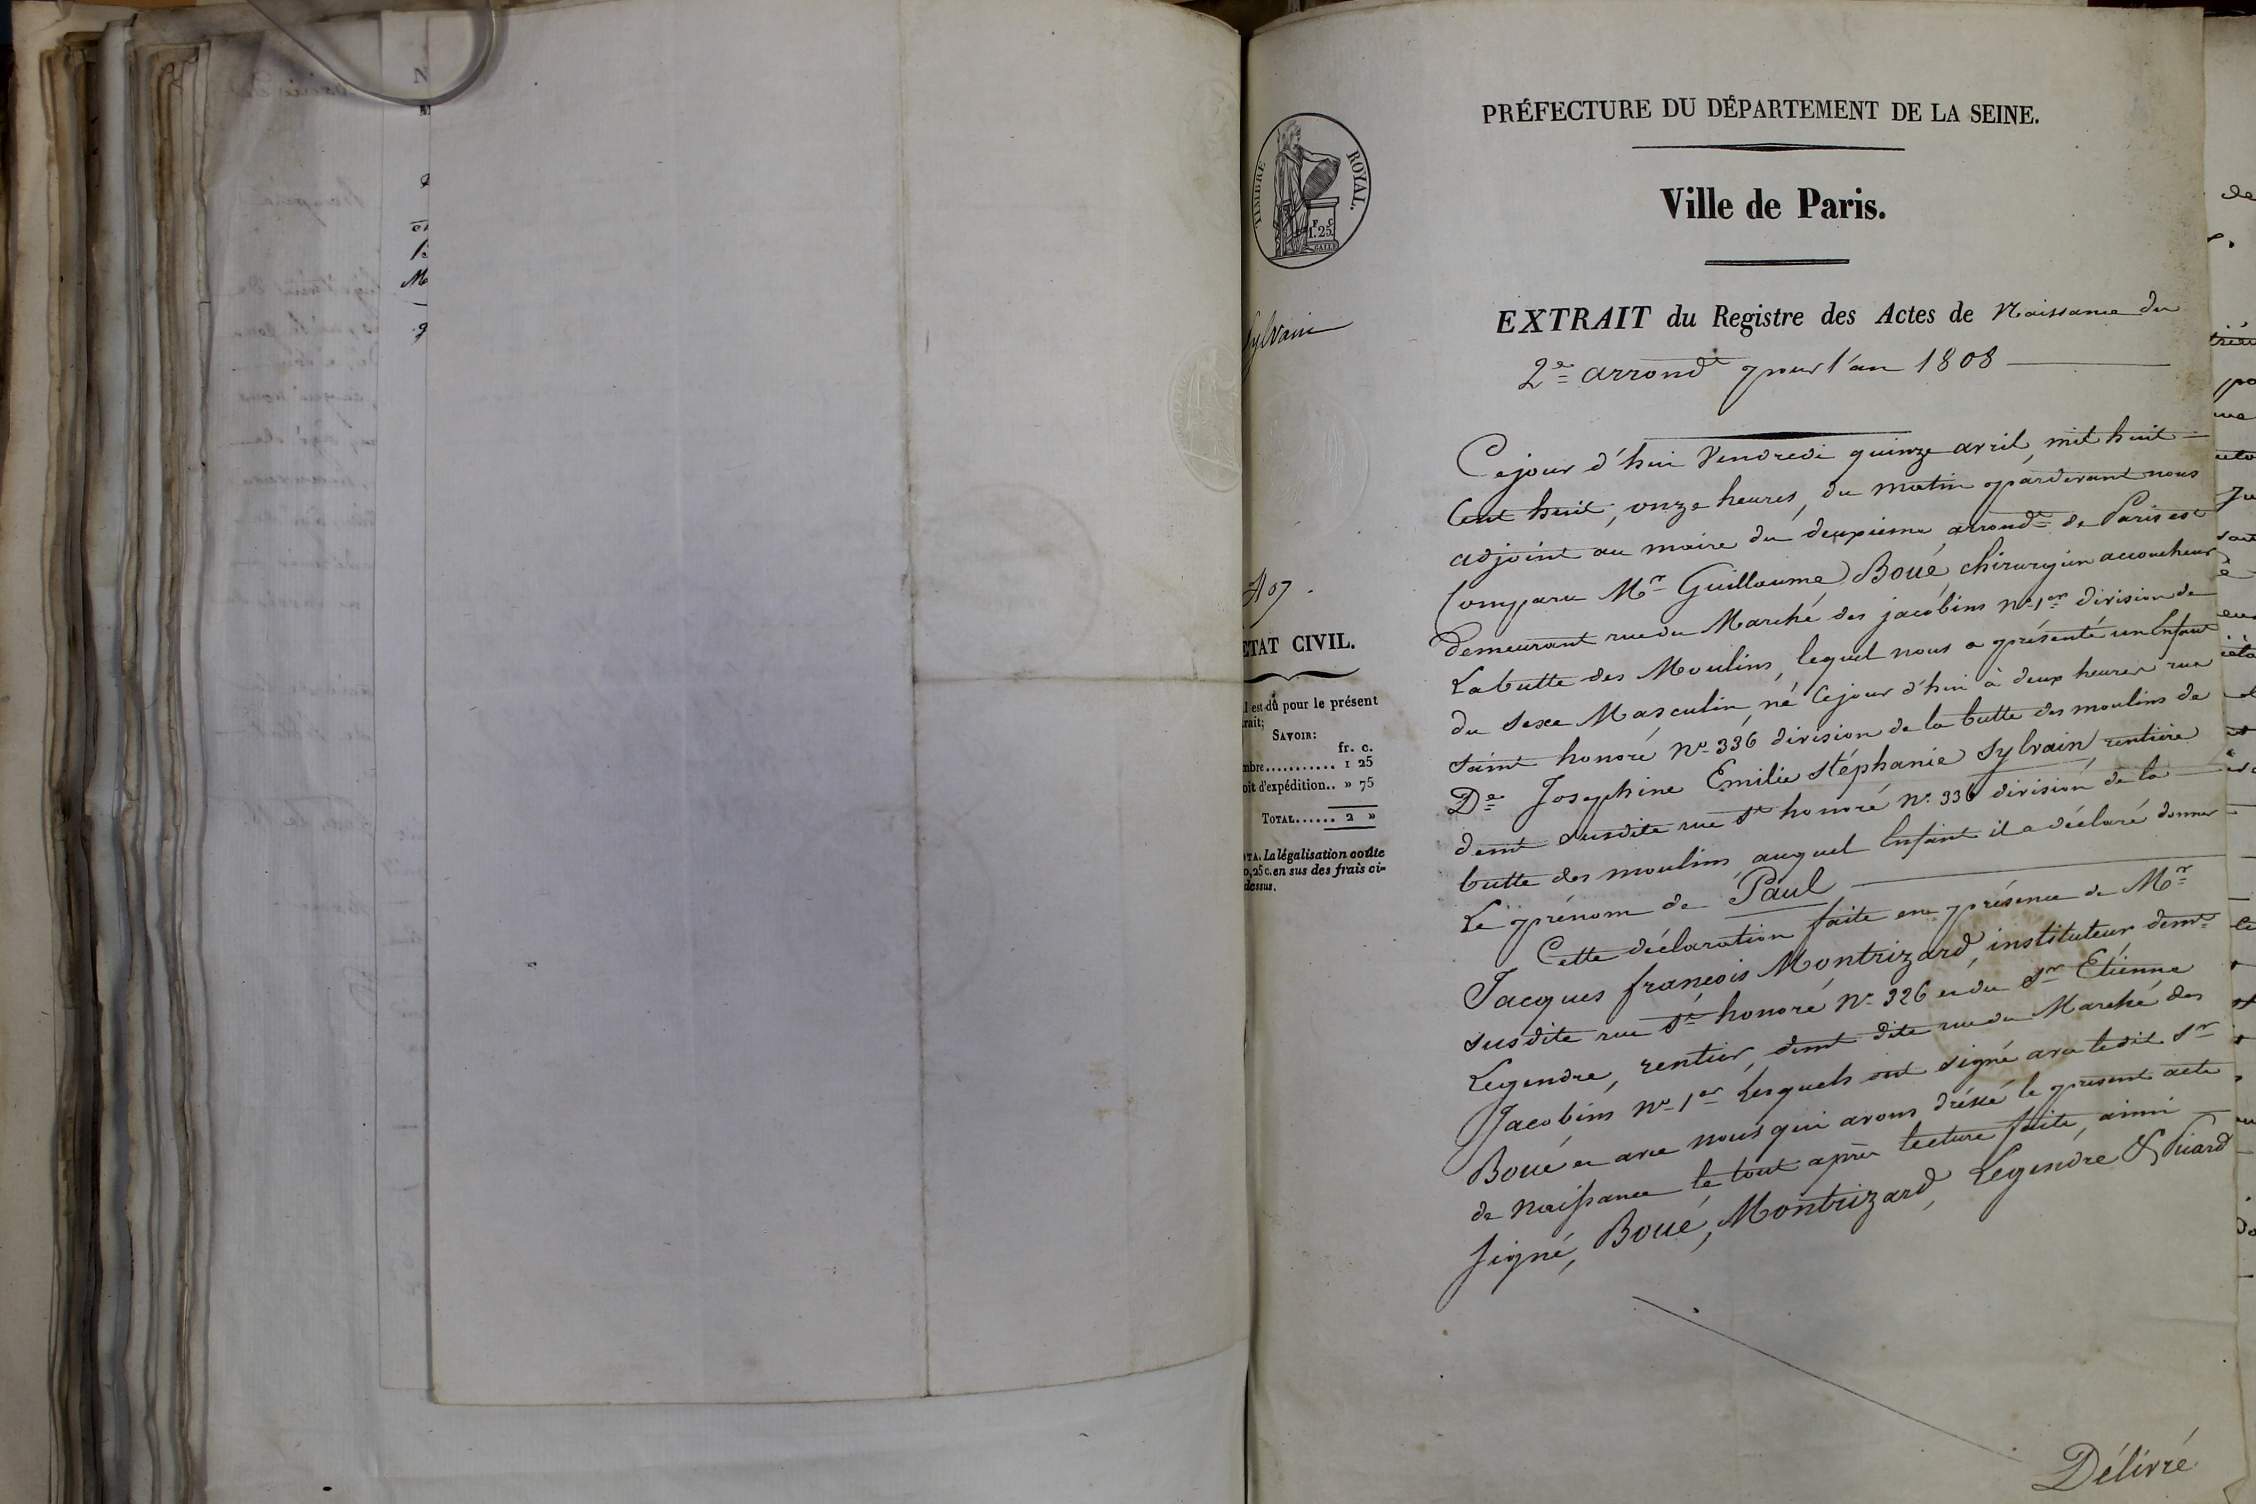 PRÉFECTURE DU DÉPARTEMENT DE LA SEINE.
TIMBRE ROYAL.
F. C
1.25.
Ville de Paris.
EXTRAIT du Registre des Actes de Naissance du
2e arrondt pour l'an 1808
Sylvain
Cejour d'hui Vendredi quinze avril, mil huit
Cent huit, onze heures, du matin pardevant nous
adjoint au maire du deuxieme arrondt de Paris est
Comparu Mr Guillaume Boué, chirurgien accoucheur
demeurant rue du Marché des jacobins no 1er division de
La butte des Moulins, lequel nous a présenté un Enfant
du sexe Masculin, né Cejour d'hui à deux heures rue
saint honoré No 336 division de la butte des moulins de
De Josephine Emilie stéphanie Sylvain, rentiere
demt susdite rue st honoré No 336 division de la
butte des moulins auquel Enfant il a déclaré donner
Le prénom de Paul
Cette déclaration faite en présence de Mr
Jacques françois Montrizard, instituteur demt
susdite rue st honoré No 326 et du Sr Etienne
Legendre, rentier, demt dite rue du Marché des
Jacobins No 1er Lesquels ont signé avec ledit Sr
Boué et avec nous qui avons dressé le present acte
de Naissance le tout après lecture faite, ainsi
signé, Boué, Montrizard, Legendre &
Délivré
407.
ETAT CIVIL.
l est dû pour le présent
rait;
SAVOIR:
fr. c.
mbre........... 1 25
oit d'expédition.. » 75
TOTAL...... 2 »
TA. La légalisation coûte
0,25 c. en sus des frais ci-
dessus.